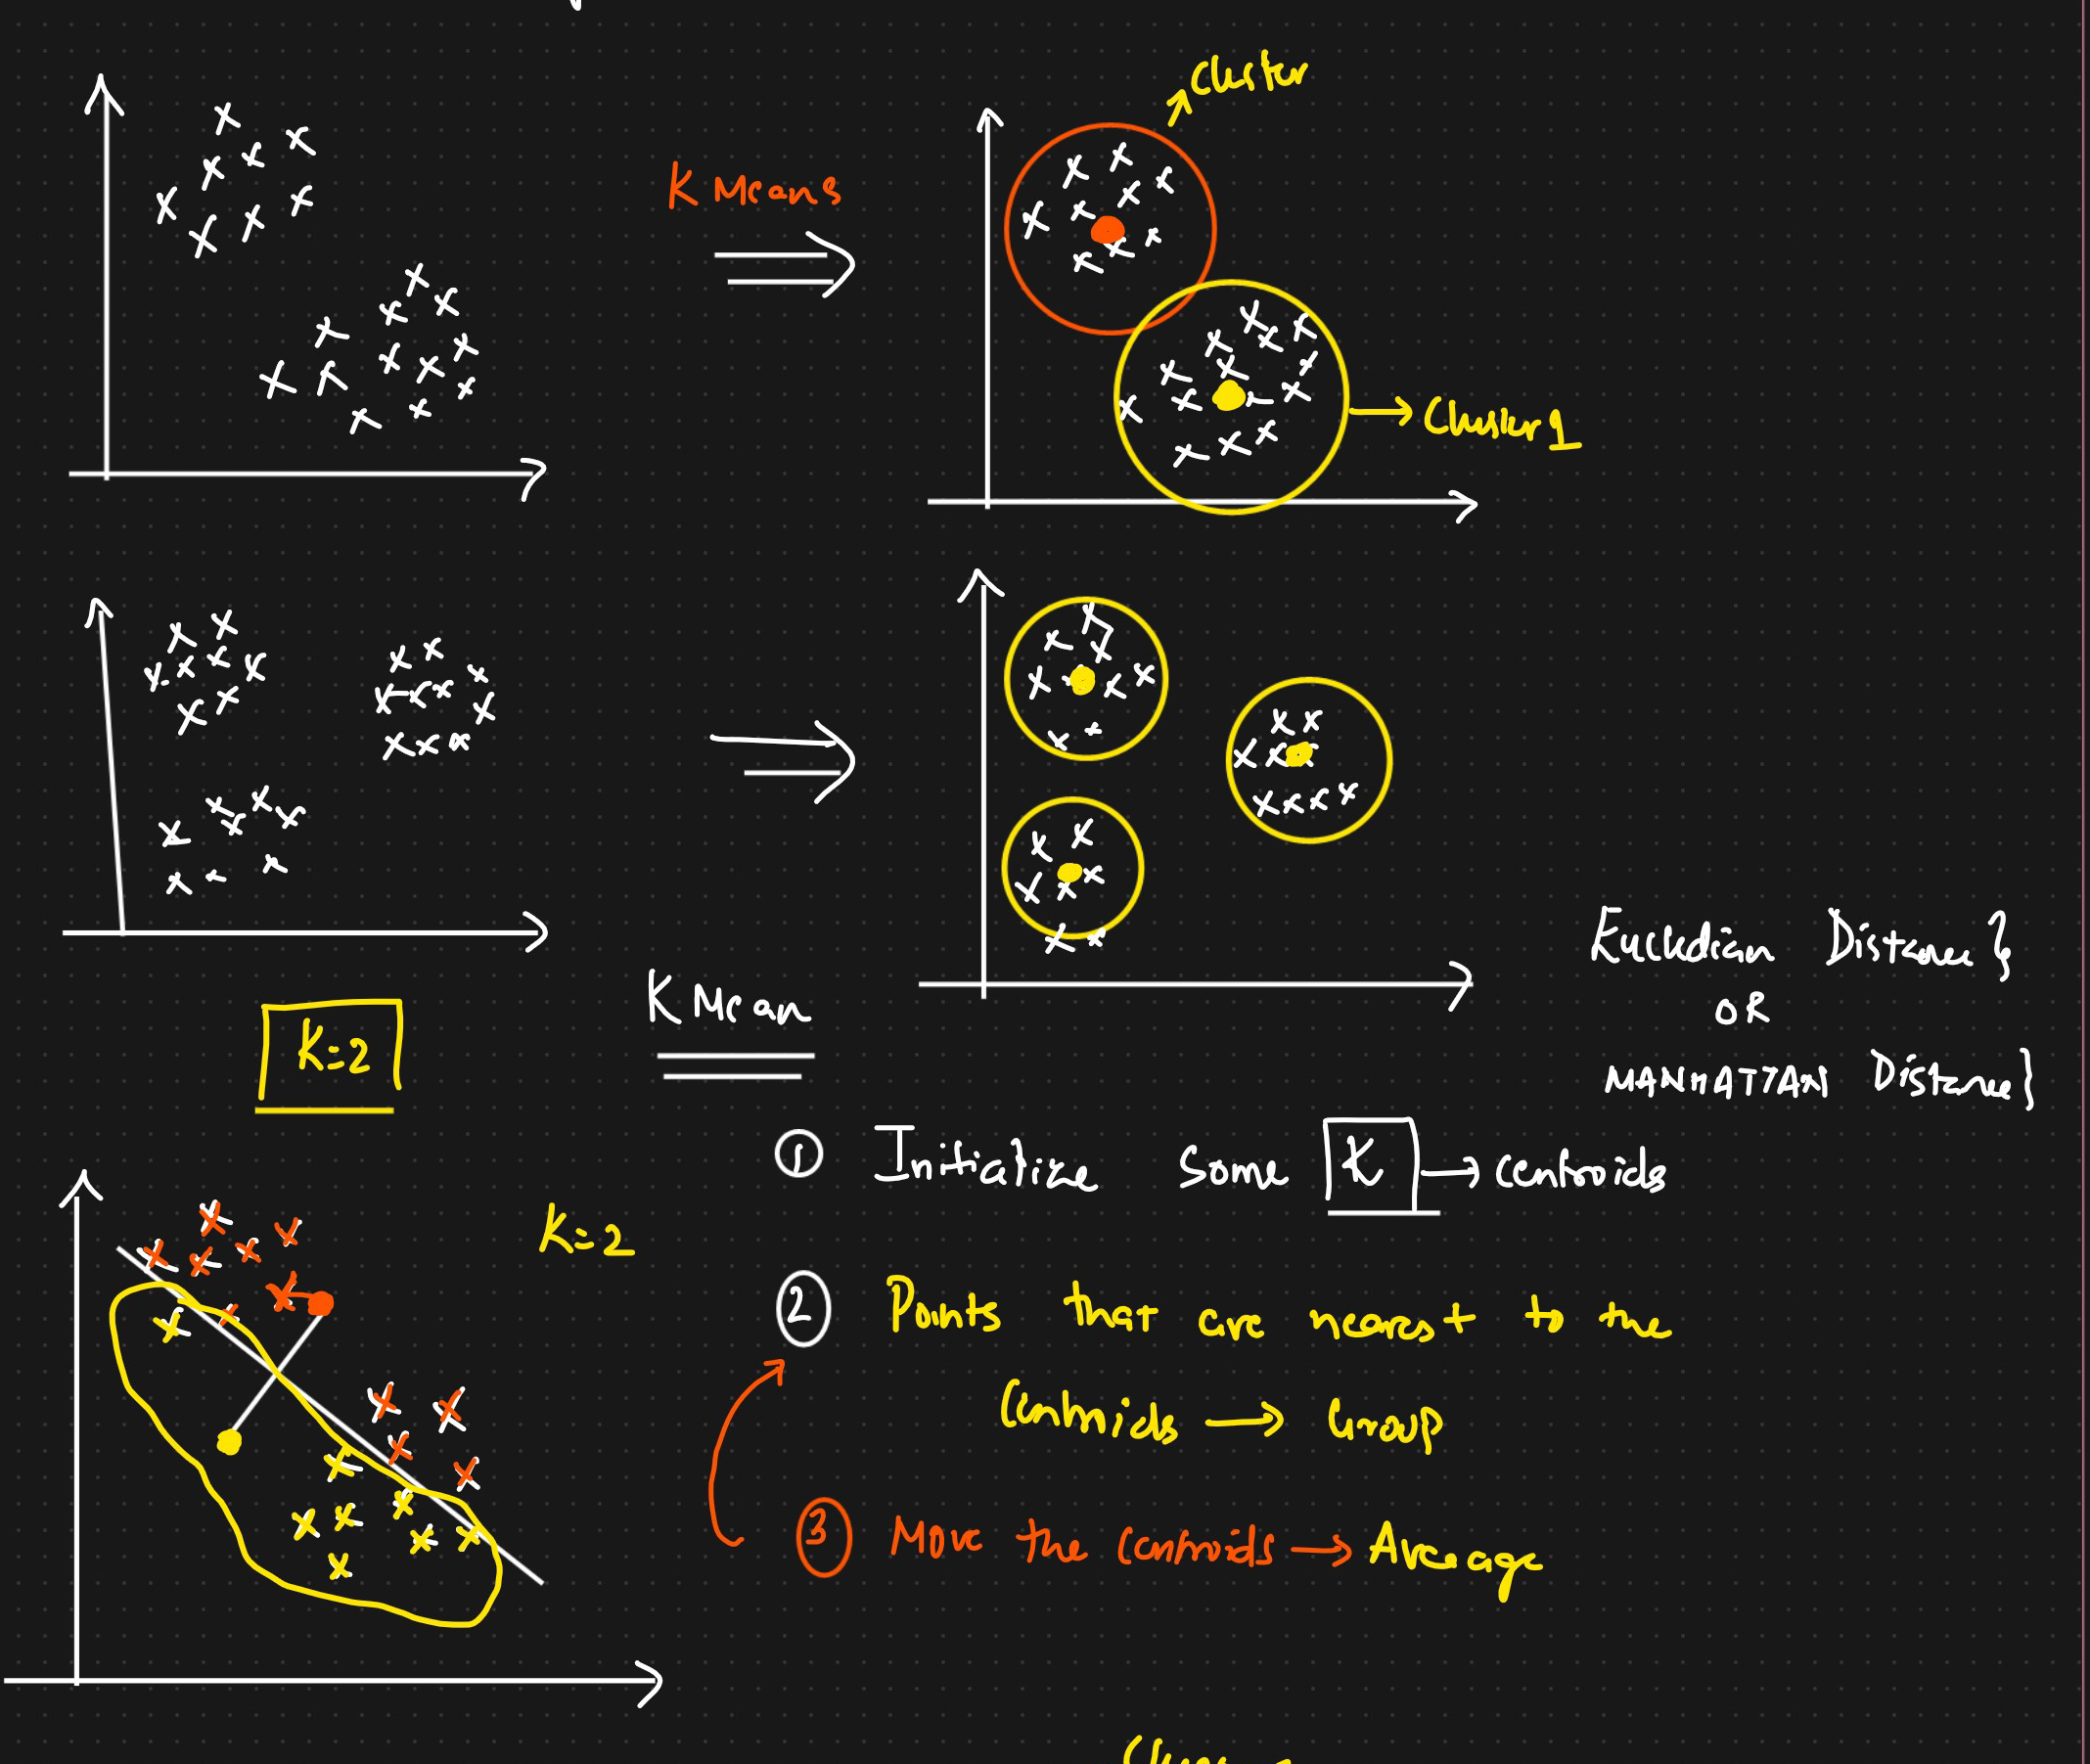 Cluster
K Means
Cluster 1
Eucledian Distance }
OR
MANHATTAN Distance }
K=2
K Mean
① Initialize Some K → Centroids
K=2
② Points that are nearest to the
Centroids → Group
③ Move the Centroids → Average